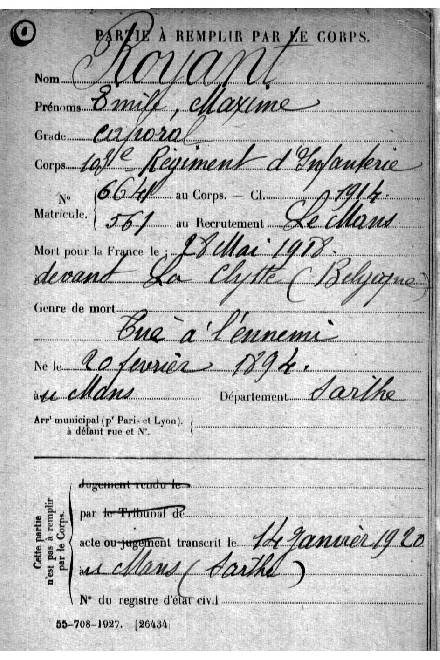 PARTIE À REMPLIR PAR LE CORPS.
Nom Royant
Prénoms Emile, Maxime
Grade caporal
Corps Régiment d'Infanterie
N° Matricule. 6641 au Corps. — Cl. 1914
561 au Recrutement Le Mans
Mort pour la France le 28 Mai 1918
devant La Clytte (Belgique)
Genre de mort
Tué à l'ennemi
Né le 20 fevrier 1894.
au Mans Département Sarthe
Arr^t municipal (p^r Paris et Lyon).
à défaut rue et N°.
Cette partie n'est pas à remplir par le Corps.
Jugement rendu le
par le Tribunal de
acte ou jugement transcrit le 14 Janvier 1920
au Mans (Sarthe)
N° du registre d'état civil
55-708-1927. [26434]